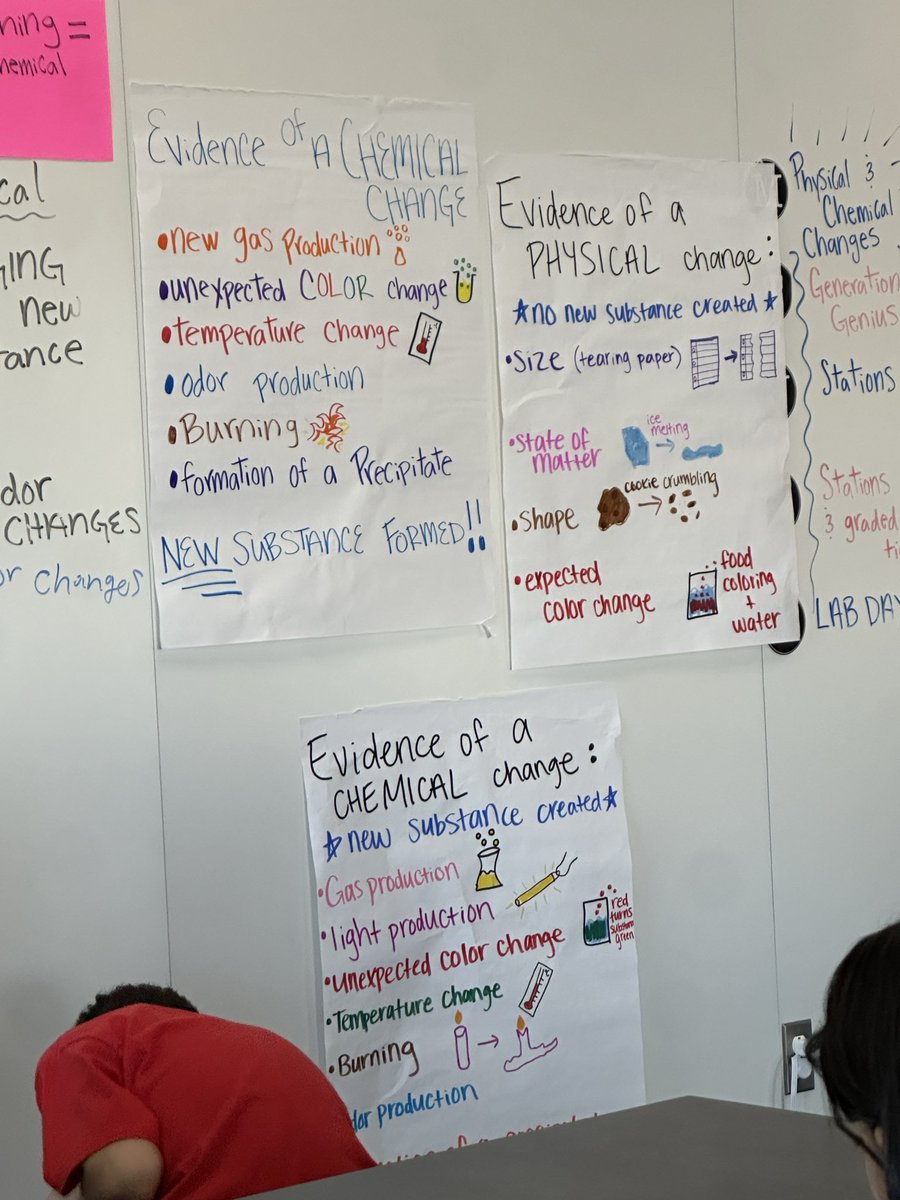 ning =
hemical
cal
GING
new
tance
dor
CHANGES
or changes
Evidence of A CHEMICAL
CHANGE
•new gas production
•unexpected COLOR change
•temperature change
•odor production
•Burning
•formation of a Precipitate
NEW SUBSTANCE FORMED!!
Evidence of a
PHYSICAL change:
★no new substance created★
•Size (tearing paper)
•state of
matter
ice
melting
•shape
cookie crumbling
•expected
color change
food
coloring
+
water
Physical &
Chemical
Changes
Generation
Genius
Stations
Stations
& graded
ti
LAB DAY
Evidence of a
CHEMICAL change:
★new substance created★
•Gas production
•light production
•unexpected color change
red
turns
substance
green
•Temperature change
•Burning
dor production